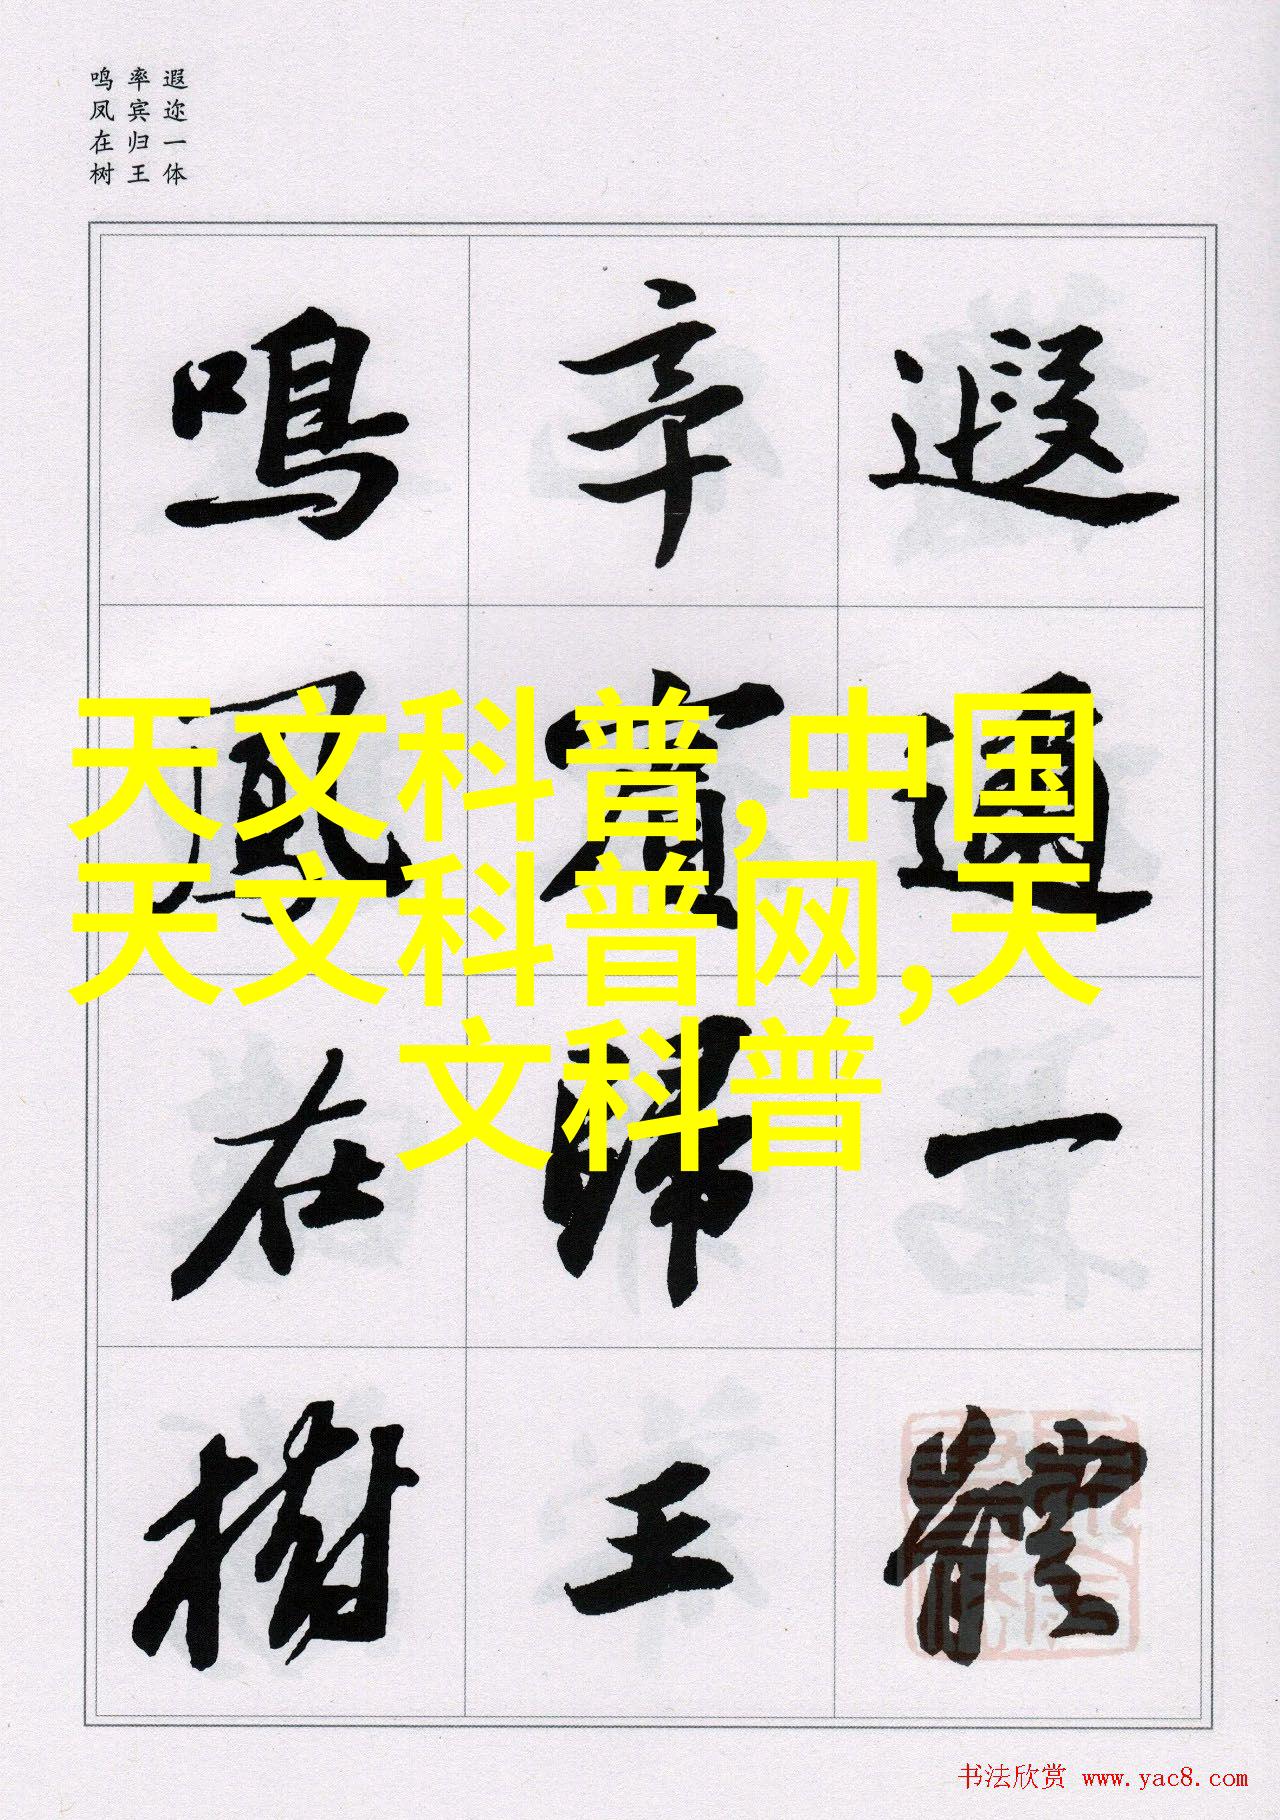 遐迩一体
率宾归王
鸣凤在树
遐邇一體
率賓歸王
鳴鳳在樹
天文科普,中国
天文科普网,天
文科普
书法欣赏 www.yac8.com